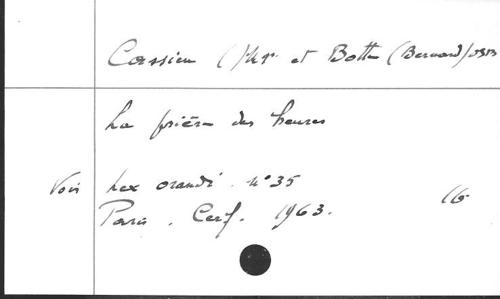 Cassien (Mgr et Botte (Bernard) OSB
La prière des heures
Voir Lex orandi. n°35
Paris. Cerf. 1963.
16